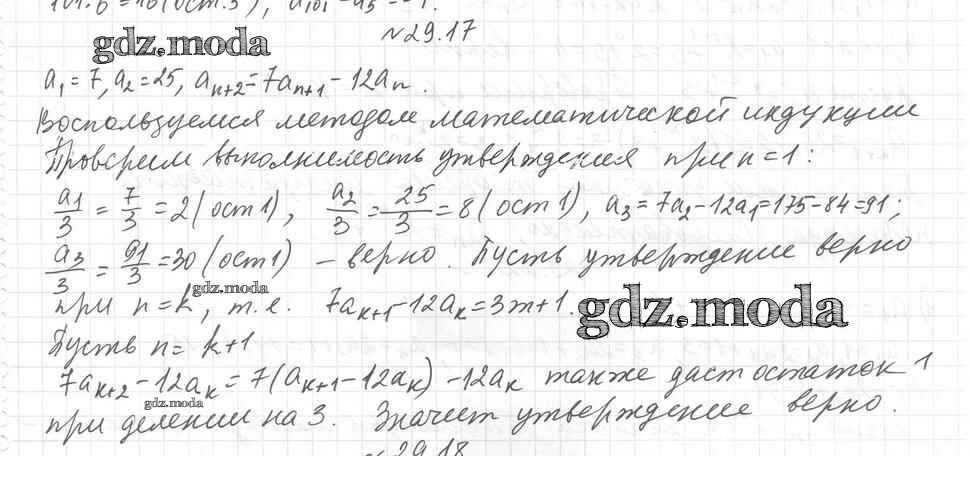 101:6=16(ост.5), a₁₀₁=a₅=-1.
№29.17
gdz.moda
a₁=7, a₂=25, aₙ₊₂=7aₙ₊₁-12aₙ.
Воспользуемся методом математической индукции
Проверим выполнимость утверждения при n=1:
a₁/3 = 7/3 = 2(ост 1), a₂/3 = 25/3 = 8(ост 1), a₃=7a₂-12a₁=175-84=91;
a₃/3 = 91/3 = 30(ост 1) – верно. Пусть утверждение верно
gdz.moda
при n=k, т.е. 7aₖ₊₁-12aₖ=3m+1.
gdz.moda
Пусть n=k+1
7aₖ₊₂-12aₖ=7(aₖ₊₁-12aₖ)-12aₖ также даст остаток 1
gdz.moda
при делении на 3. Значит утверждение верно.
№29.18